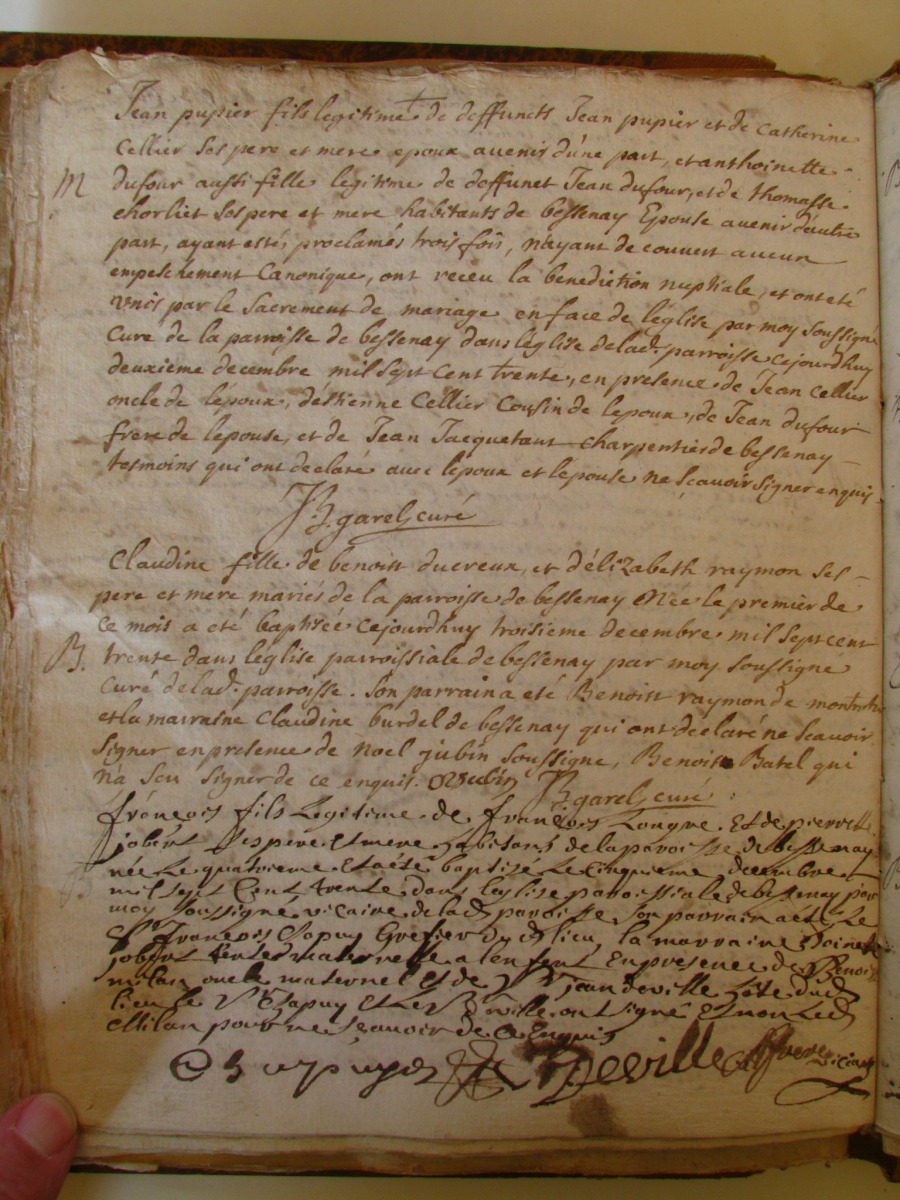 Jean pupier fils legitime de deffuncts Jean pupier et de Catherine
Cellier ses pere et mere epoux avenir d'une part, et anthoinette
M dufour aussi fille legitime de deffunct Jean dufour, et de thomasse
chorliet ses pere et mere habitants de bessenay Epouse avenir d'autre
part, ayant estés proclamés trois fois, n'ayant decouvert aucun
empeschement Canonique, ont receu la benediction nuptiale, et ont eté
unis par le Sacrement de mariage en face de l'eglise par moy soussigné
Curé de la parroisse de bessenay dans l'eglise de lad. parroisse cejourdhuy
deuxième decembre mil sept cent trente, en presence de Jean Cellier
oncle de l'epoux, d'éstienne Cellier Cousin de l'epoux, de Jean dufour
frere de l'epouse, et de Jean Jacquetant charpentier de bessenay
tesmoins qui ont declaré avec l'epoux et l'epouse ne scavoir signer enquis
garel, curé
Claudine fille de benoist ducreux, et d'élizabeth raymon ses
pere et mere mariés de la parroisse de bessenay Née le premier de
ce mois a été baptisée cejourdhuy troisieme decembre mil sept cent
B. trente dans l'eglise parroissiale de bessenay par moy soussigné
Curé de lad. parroisse. Son parrain a été Benoist raymond de
et la marraine Claudine burdel de bessenay qui ont declaré ne scavoir
signer en presence de noel jubin soussigné, Benoist Batel qui
n'a sçu signer de ce enquis. Jubin garel, curé
françois fils Legitime de françois Longre Et de pierrette
jobert ses pere Et mere habitans de la paroisse de bessenay
née Le quatrieme Et a été baptisé Le Cinquieme decembre
B mil sept Cent trente dans l'eglise paroissiale de bessenay par
moy soussigné vicaire de lad. paroisse Son parrain a été Le
Sr françois Chapuy Greffier dud. lieu, la marraine
jobert tente maternelle a l'enfent En presence de Benoit
milan oncle maternel Et de Sr jean deville dud.
lieu Le Sr Chapuy Et Le Sr deville ont signé Et non Led.
Milan pour ne sçavoir de Ce Enquis
Chapuy Deville vicaire